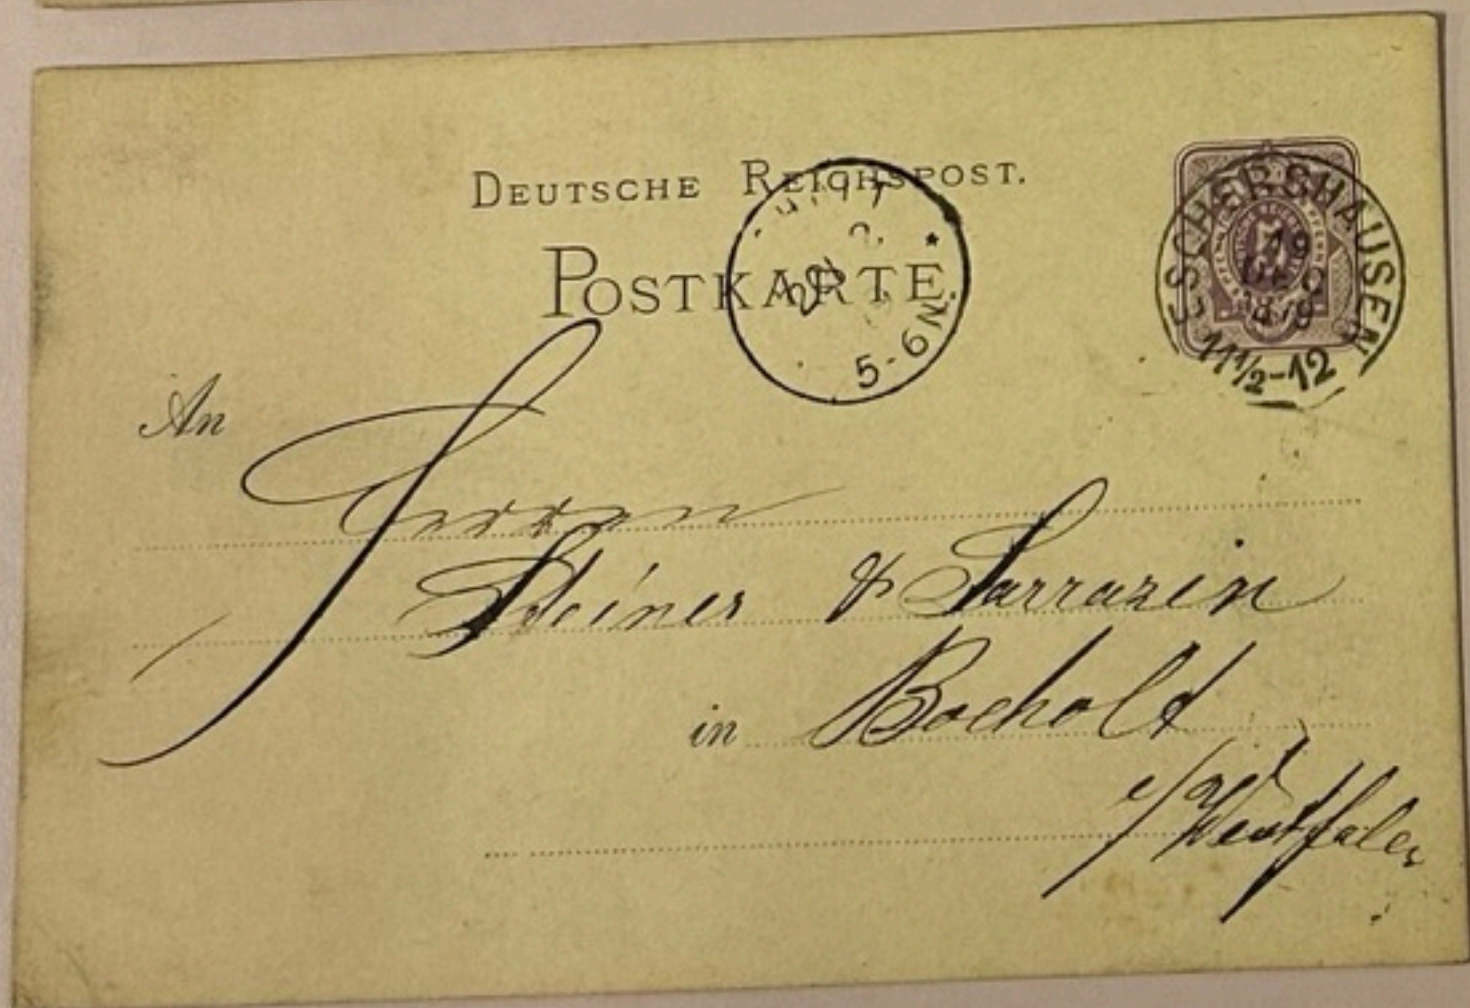 DEUTSCHE REICHSPOST.
POSTKARTE
5-6N
ESCHERSHAUSEN
19
1879
11½-12
An
Herren
& Sarrazin
in Bocholt
i/Westfalen